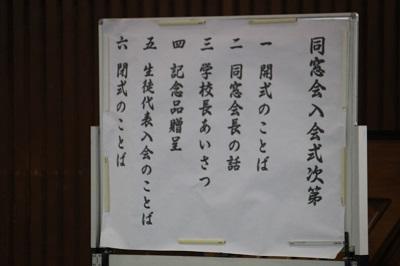 同窓会入会式次第
一 開式のことば
二 同窓会長の話
三 学校長あいさつ
四 記念品贈呈
五 生徒代表入会のことば
六 閉式のことば